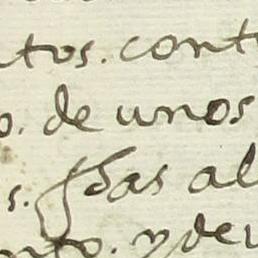 tos. cont
o. de unos
s. al
to. y de